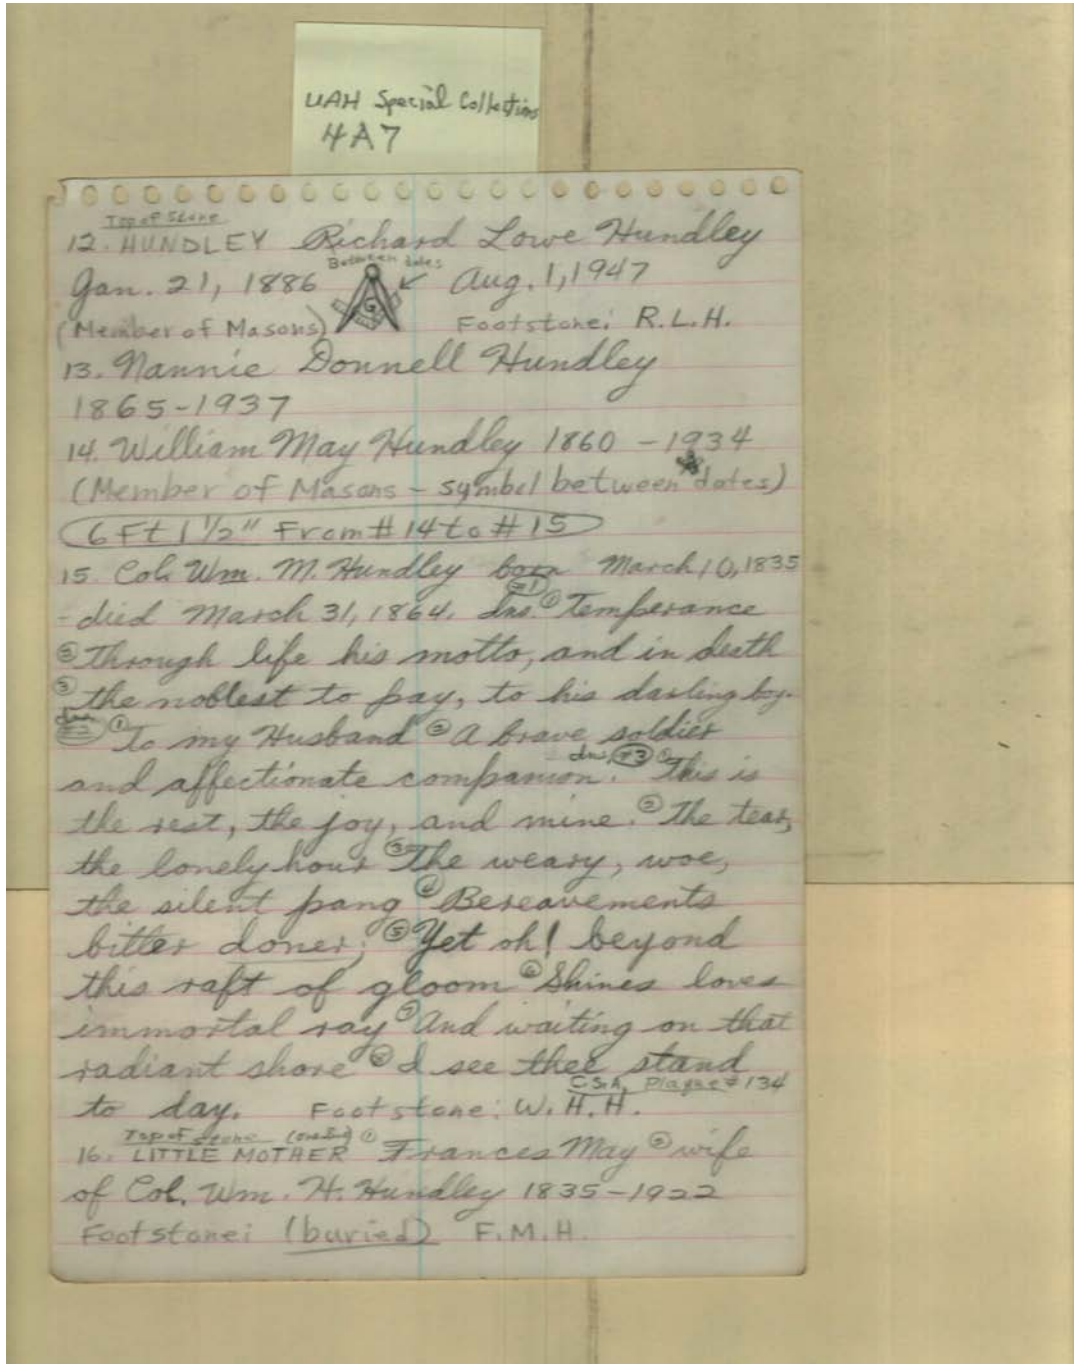 UAH Special Collections
4A7
Top of Stone
12. HUNDLEY Richard Lowe Hundley
Between dates
Jan. 21, 1886 G Aug. 1, 1947
(Member of Masons) Footstone: R.L.H.
13. Nannie Donnell Hundley
1865-1937
14. William May Hundley 1860 - 1934
(Member of Masons - symbol between dates)
6 Ft 1 1/2" From # 14 to # 15
15 Col. Wm. M. Hundley born March 10, 1835
- died March 31, 1864. Ins. #1 ① Temperance
② Through life his motto, and in death
③ the noblest to pay, to his darling boy.
#2 ① To my Husband ② A brave soldier
and affectionate companion. Ins. #3 ① This is
the rest, the joy, and mine. ② The tear,
the lonely hour ③ The weary, woe,
the silent pang ④ Bereavements
bitter doner; ⑤ Yet oh! beyond
this raft of gloom ⑥ Shines loves
immortal ray ⑦ And waiting on that
radiant shore ⑧ I see thee stand
C.S.A. Plaque # 134
to day. Footstone: W. H. H.
Top of stone ①
16. LITTLE MOTHER Frances May ② wife
of Col. Wm. H. Hundley 1835-1922
Footstone: (buried) F.M.H.